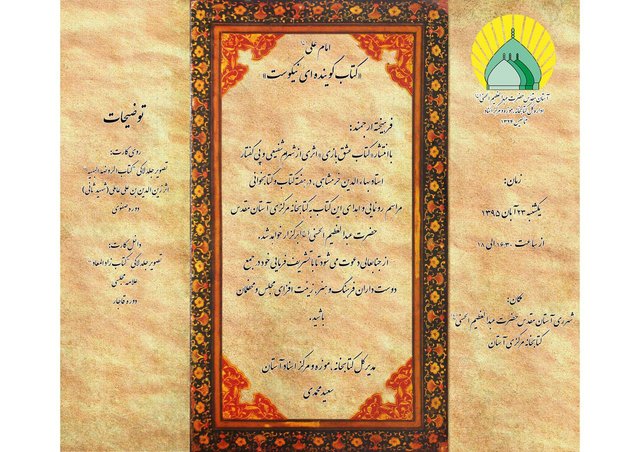 آستان مقدس حضرت عبدالعظیم الحسنی
اداره کل کتابخانه، موزه و مرکز اسناد
تأسیس ۱۳۲۴
زمان:
یکشنبه ۲۳ آبان ۱۳۹۵
از ساعت ۱۶:۳۰ الی ۱۸
مکان:
شهرری آستان مقدس حضرت عبدالعظیم الحسنی
کتابخانه مرکزی آستان
امام علی
«کتاب گوینده ای نیکوست»
فرهیخته ارجمند:
با انتشار «کتاب عشق بازی» اثری از شهرام شفیعی و پی گفتار
استاد بهاءالدین خرمشاهی، در هفته کتاب و کتابخوانی
مراسم رونمایی و اهدای این کتاب به کتابخانه مرکزی آستان مقدس
حضرت عبدالعظیم الحسنی برگزار خواهد شد.
از جنابعالی دعوت می شود تا با تشریف فرمایی خود در جمع
دوست داران فرهنگ و هنر، زینت افزای مجلس و محفلمان
باشید.
مدیر کل کتابخانه، موزه و مرکز اسناد آستان
سعید محمدی
توضیحات
روی کارت:
تصویر جلد لاکی کتاب الروضة البهیة
اثر زین الدین بن علی عاملی (شهید ثانی)
دوره صفوی
داخل کارت:
تصویر جلد لاکی کتاب زاد المعاد
علامه مجلسی
دوره قاجار